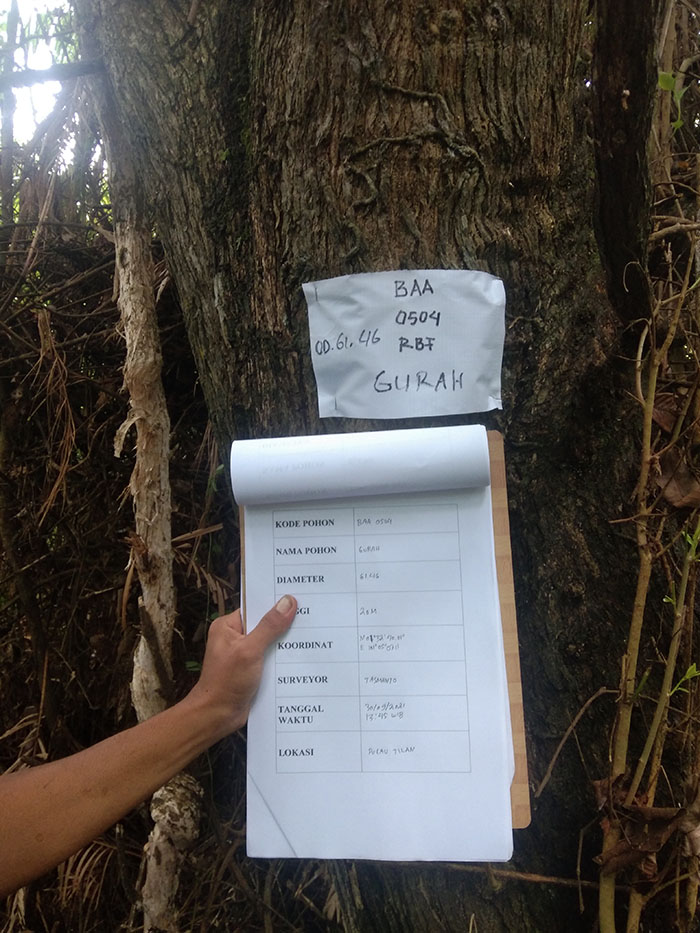 BAA
0504
OD. 61. 46 RBF
GURAH
KODE POHON BAA 0504
NAMA POHON GURAH
DIAMETER 61.46
GGI 20M
KOORDINAT
SURVEYOR TASMANTO
TANGGAL 30/09/2021
WAKTU 13:45 WIB
LOKASI PULAU TILAN